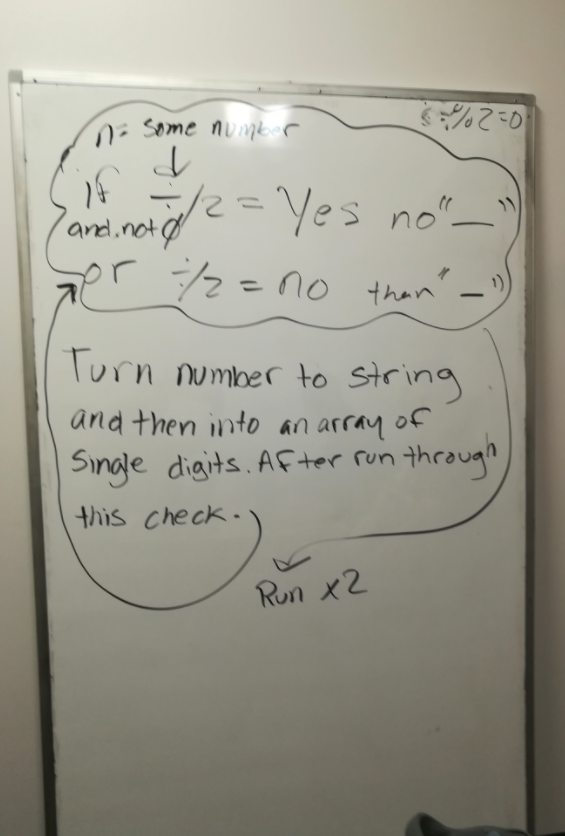 n= some number
if ÷/2 = Yes no "_"
and.not 0
or ÷/2 = no than "_"
Turn number to string
and then into an array of
Single digits. After run through
this check.
Run x2